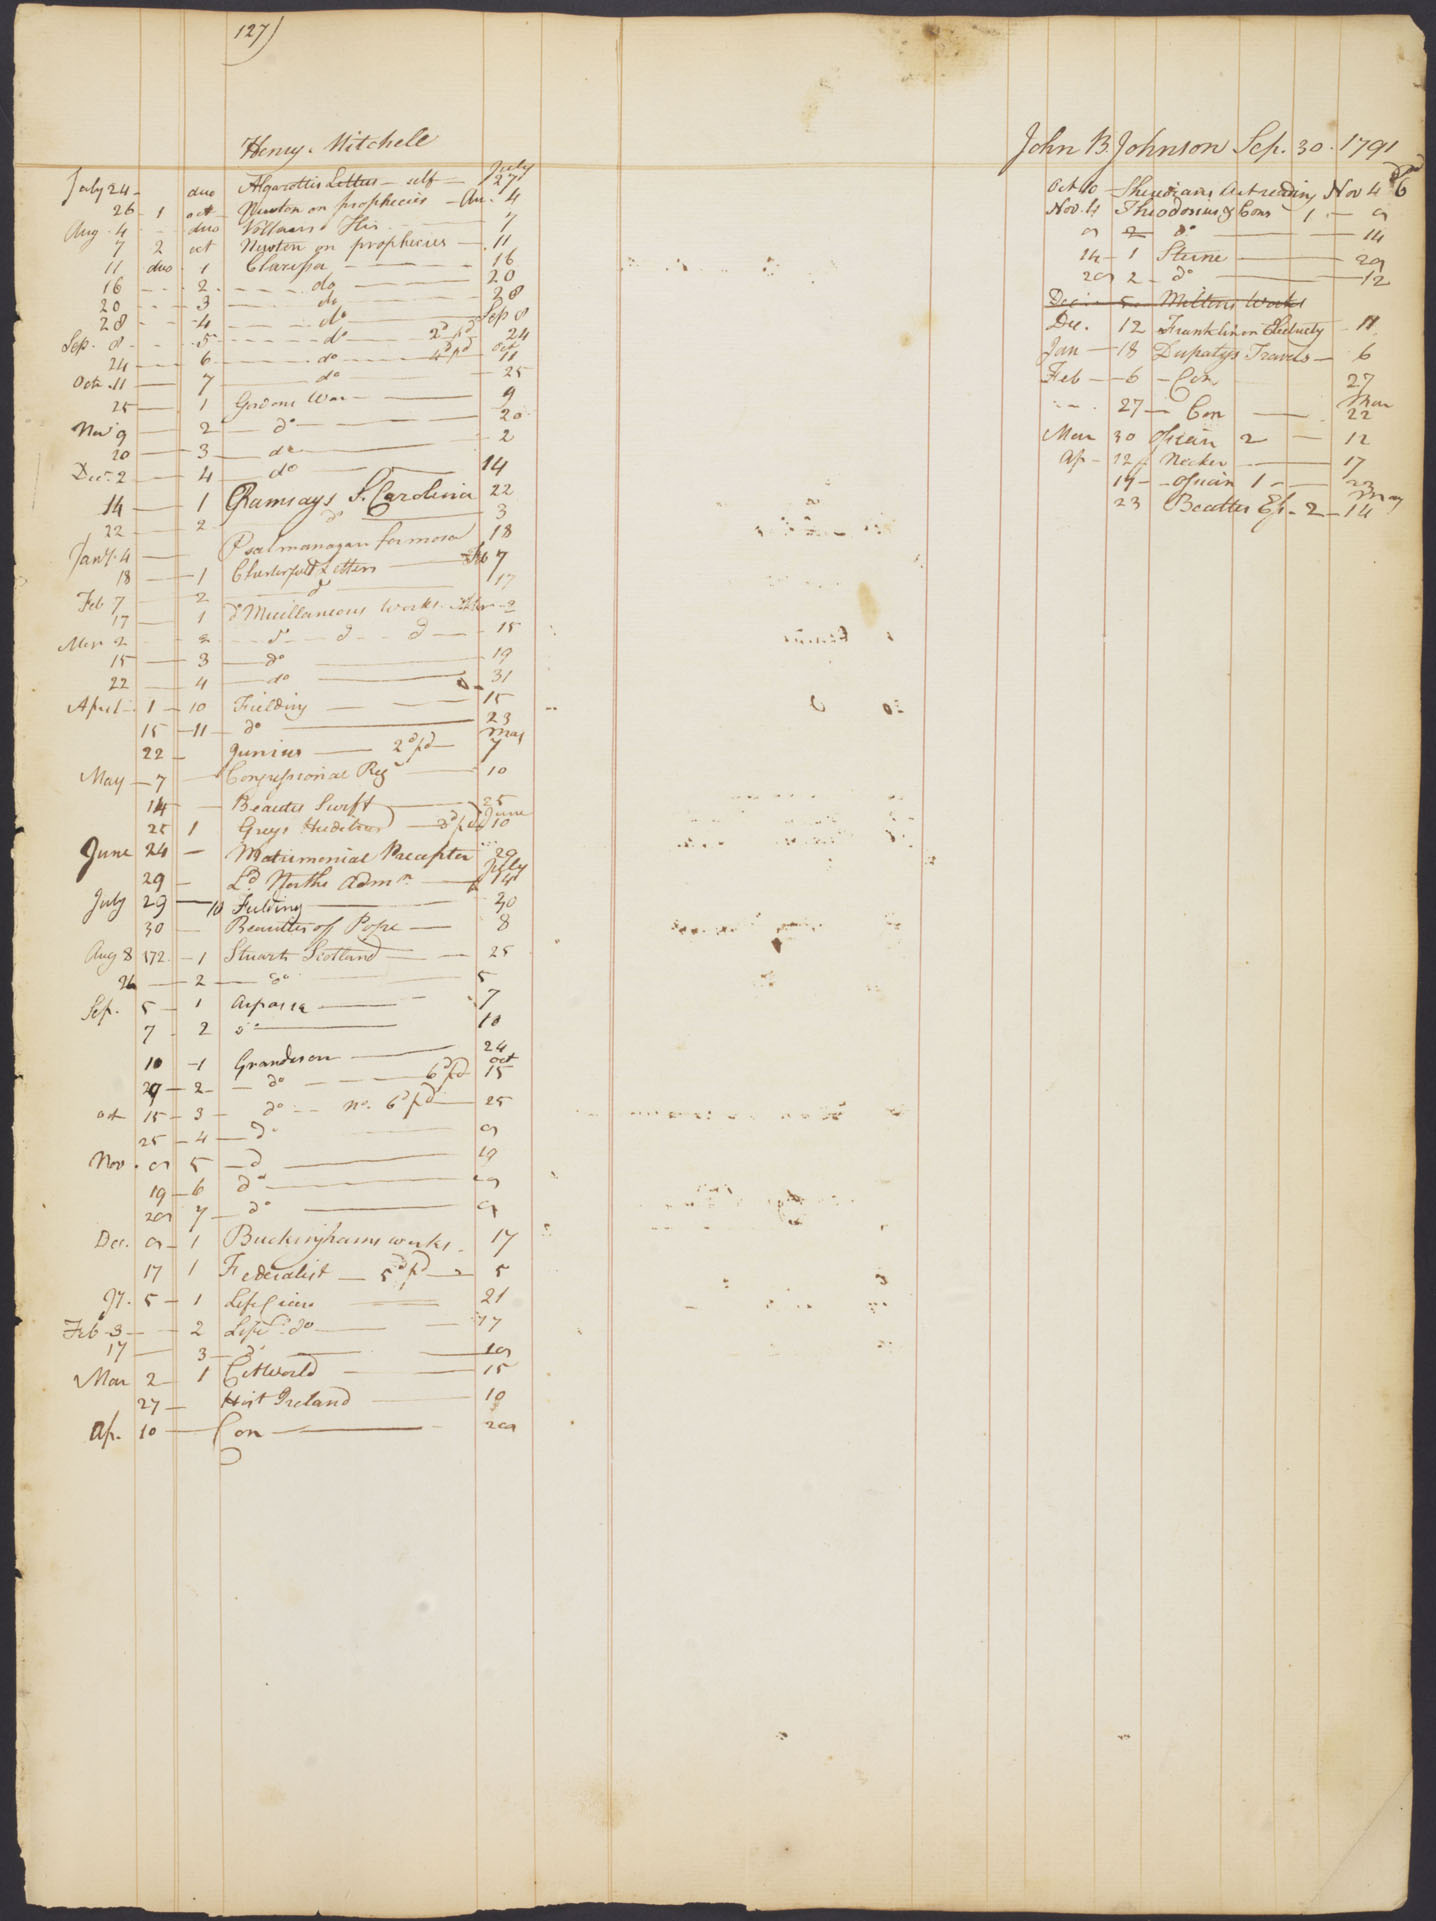 127)
Henry Mitchell
July 24 - duo Algarottis Letters - self - July 27
26 - 1 oct - Newton on prophecies - Au. 4
Aug. 4 - duo Voltaires His - 7
7 2 oct Newton on prophecies - 11
11 duo 1 Clarissa - 16
16 - 2 - do - 20
20 - 3 - do - 28
28 - 4 - do - Sep 8
Sep. 8 - 5 - do - 2d pd 24
24 - 6 - do - 4d pd oct 11
Octr. 11 - 7 - do - 25
25 - 1 Gordons War - 9
Nov 9 - 2 - do - 20
20 - 3 - do - 2
Dec. 2 - 4 - do - 14
14 - 1 Ramsays S. Carolina 22
22 - 2 - do - 3
Jany. 4 - Psalmanazar formosa 18
18 - 1 Chesterfield Letters - Feb 7
Feb 7 - 2 - do - 17
17 - 1 do Miscellaneous Works - Mar - 2
Mar 2 - 2 - do - do - do - 15
15 - 3 - do - 19
22 - 4 - do - 31
April 1 - 10 Fielding - 15
15 - 11 - do - 23
22 - Junius - 2d pd - May 7
May - 7 - Congressional Reg - 10
14 - Beauties Swift - 25
25 1 Greys Hudebras - 3d pd June 10
June 24 - Matrimonial Precepter 29
29 - Ld Norths Admn - July 14
July 29 - 10 Fielding - 30
30 - Beautties of Pope - 8
Aug 8 172 - 1 Stuarts Scotland - 25
26 - 2 - do - 5
Sep. 5 - 1 Aspasia - 7
7 - 2 do - 10
10 - 1 Grandison - 24
29 - 2 - do - 6d pd oct 15
oct 15 - 3 - do - no. 6d pd - 25
25 - 4 - do - 9
Nov. 9 5 - do - 19
19 - 6 do - 29
29 7 - do - 9
Dec. 9 - 1 Buckinghams works - 17
17 1 Federalist - 5d pd - 5
5 - 1 Life - 21
Feb 3 - 2 Life do - 17
17 - 3 - do - 19
Mar 2 - 1 Cit World - 15
27 - Hist Ireland - 10
Ap. 10 - Con - 29
John B Johnson Sep. 30. 1791
Oct 10 - Sheridians Art reading Nov 4 6d
Nov. 4 Theodosius & Cons 1 - 9
9 2 do - 14
14 - 1 Sterne - 29
29 2 - do - 12
Dec. 5 - Miltons Works
Dec. 12 Franklin on Electrcty - 11
Jan - 18 Dupatys Travels - 6
Feb - 6 - Con 27
27 - Con - Mar 22
Mar 30 Ossian 2 - 12
Ap - 12 Necker - 17
19 - Ossian 1 - 23
23 Beatties Es - 2 - May 14